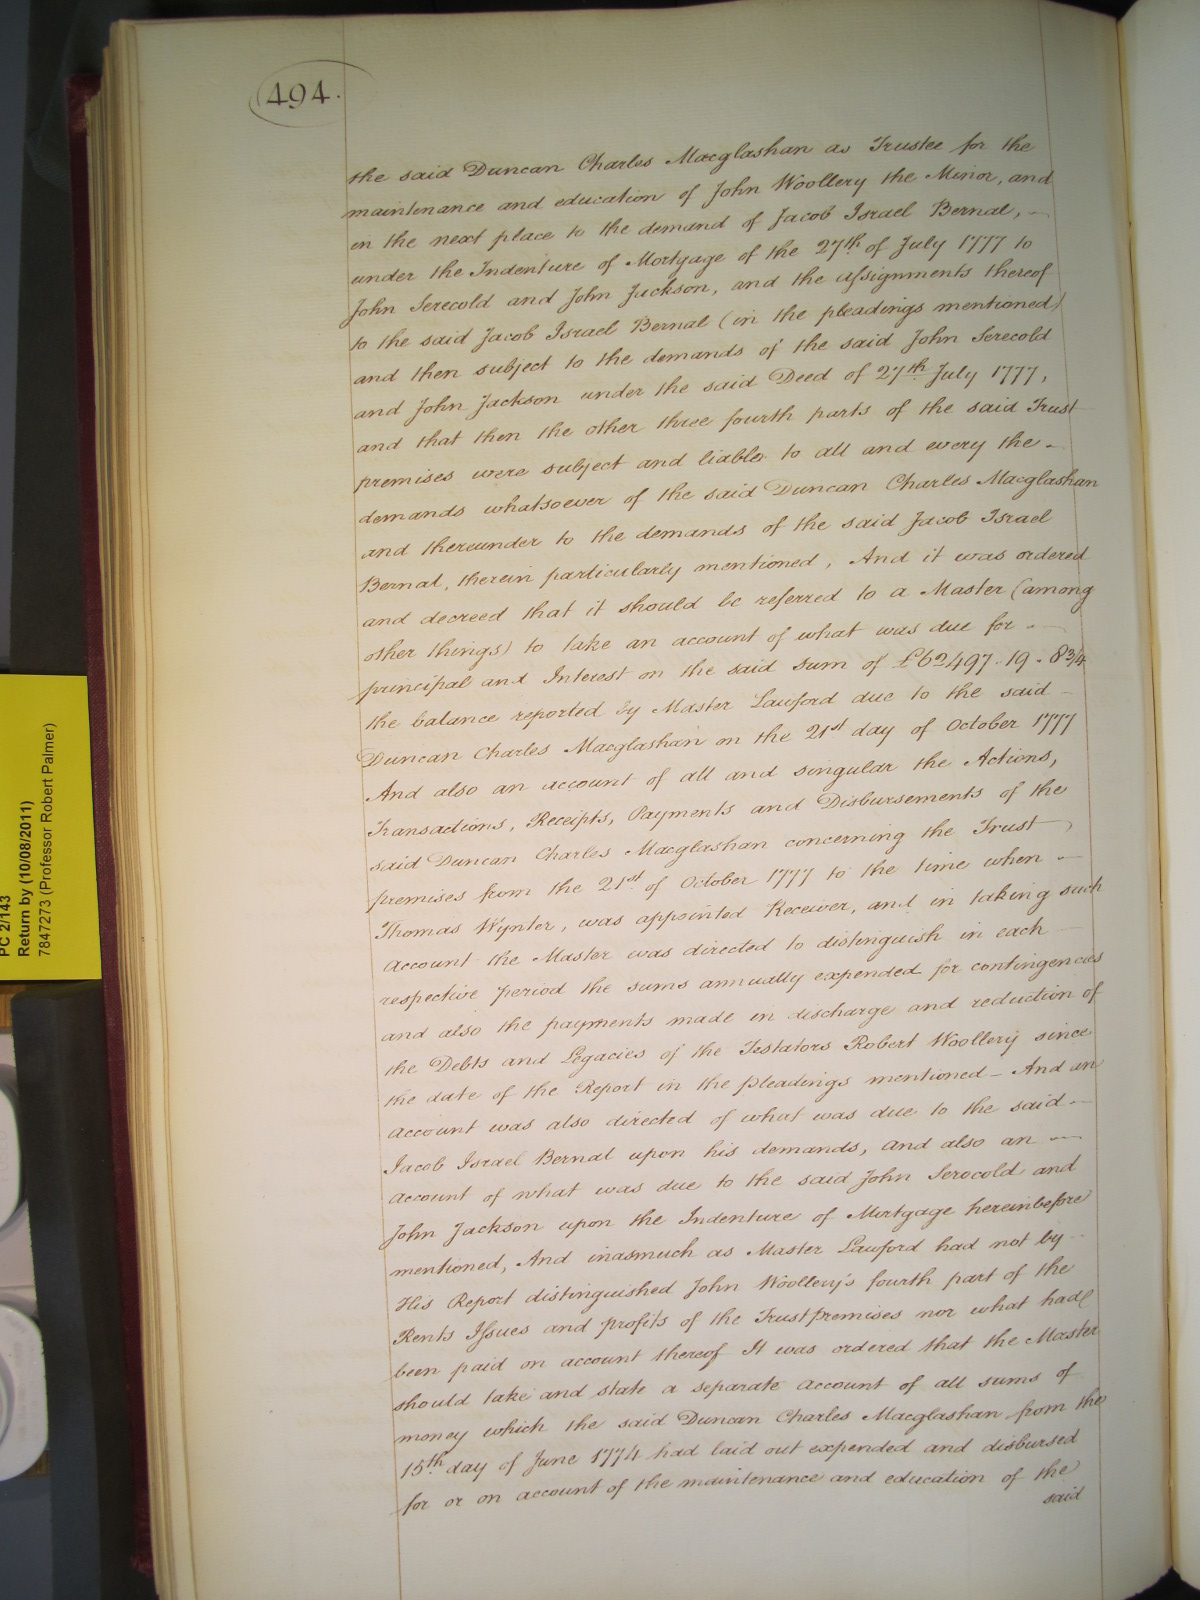 494.
the said Duncan Charles Macglashan as Trustee for the
maintenance and education of John Woollery the Minor, and
in the next place to the demand of Jacob Israel Bernal, —
under the Indenture of Mortgage of the 27th of July 1777 to
John Serecold and John Jackson, and the assignments thereof
to the said Jacob Israel Bernal (in the pleadings mentioned)
and then subject to the demands of the said John Serecold
and John Jackson under the said Deed of 27th July 1777,
and that then the other three fourth parts of the said Trust
premises were subject and liable to all and every the —
demands whatsoever of the said Duncan Charles Macglashan
and thereunder to the demands of the said Jacob Israel
Bernal, therein particularly mentioned, And it was ordered
and decreed that it should be referred to a Master (among
other things) to take an account of what was due for —
principal and Interest on the said sum of £62497.19.8¾
the balance reported by Master Lawford due to the said —
Duncan Charles Macglashan on the 21st day of October 1777
And also an account of all and singular the Actions,
Transactions, Receipts, Payments and Disbursements of the
said Duncan Charles Macglashan concerning the Trust
premises from the 21st of October 1777 to the time when —
Thomas Wynter, was appointed Receiver, and in taking such
account the Master was directed to distinguish in each —
respective period the sums annually expended for contingencies
and also the payments made in discharge and reduction of
the Debts and Legacies of the Testators Robert Woollery since
the date of the Report in the pleadings mentioned — And an
account was also directed of what was due to the said —
Jacob Israel Bernal upon his demands, and also an —
account of what was due to the said John Serocold and
John Jackson upon the Indenture of Mortgage hereinbefore
mentioned, And inasmuch as Master Lawford had not by
His Report distinguished John Woollery's fourth part of the
Rents Issues and profits of the Trust premises nor what had
been paid on account thereof It was ordered that the Master
should take and state a separate account of all sums of
money which the said Duncan Charles Macglashan from the
15th day of June 1774 had laid out expended and disbursed
for or on account of the maintenance and education of the
said
PC 2/143
Return by (10/08/2011)
7847273 (Professor Robert Palmer)